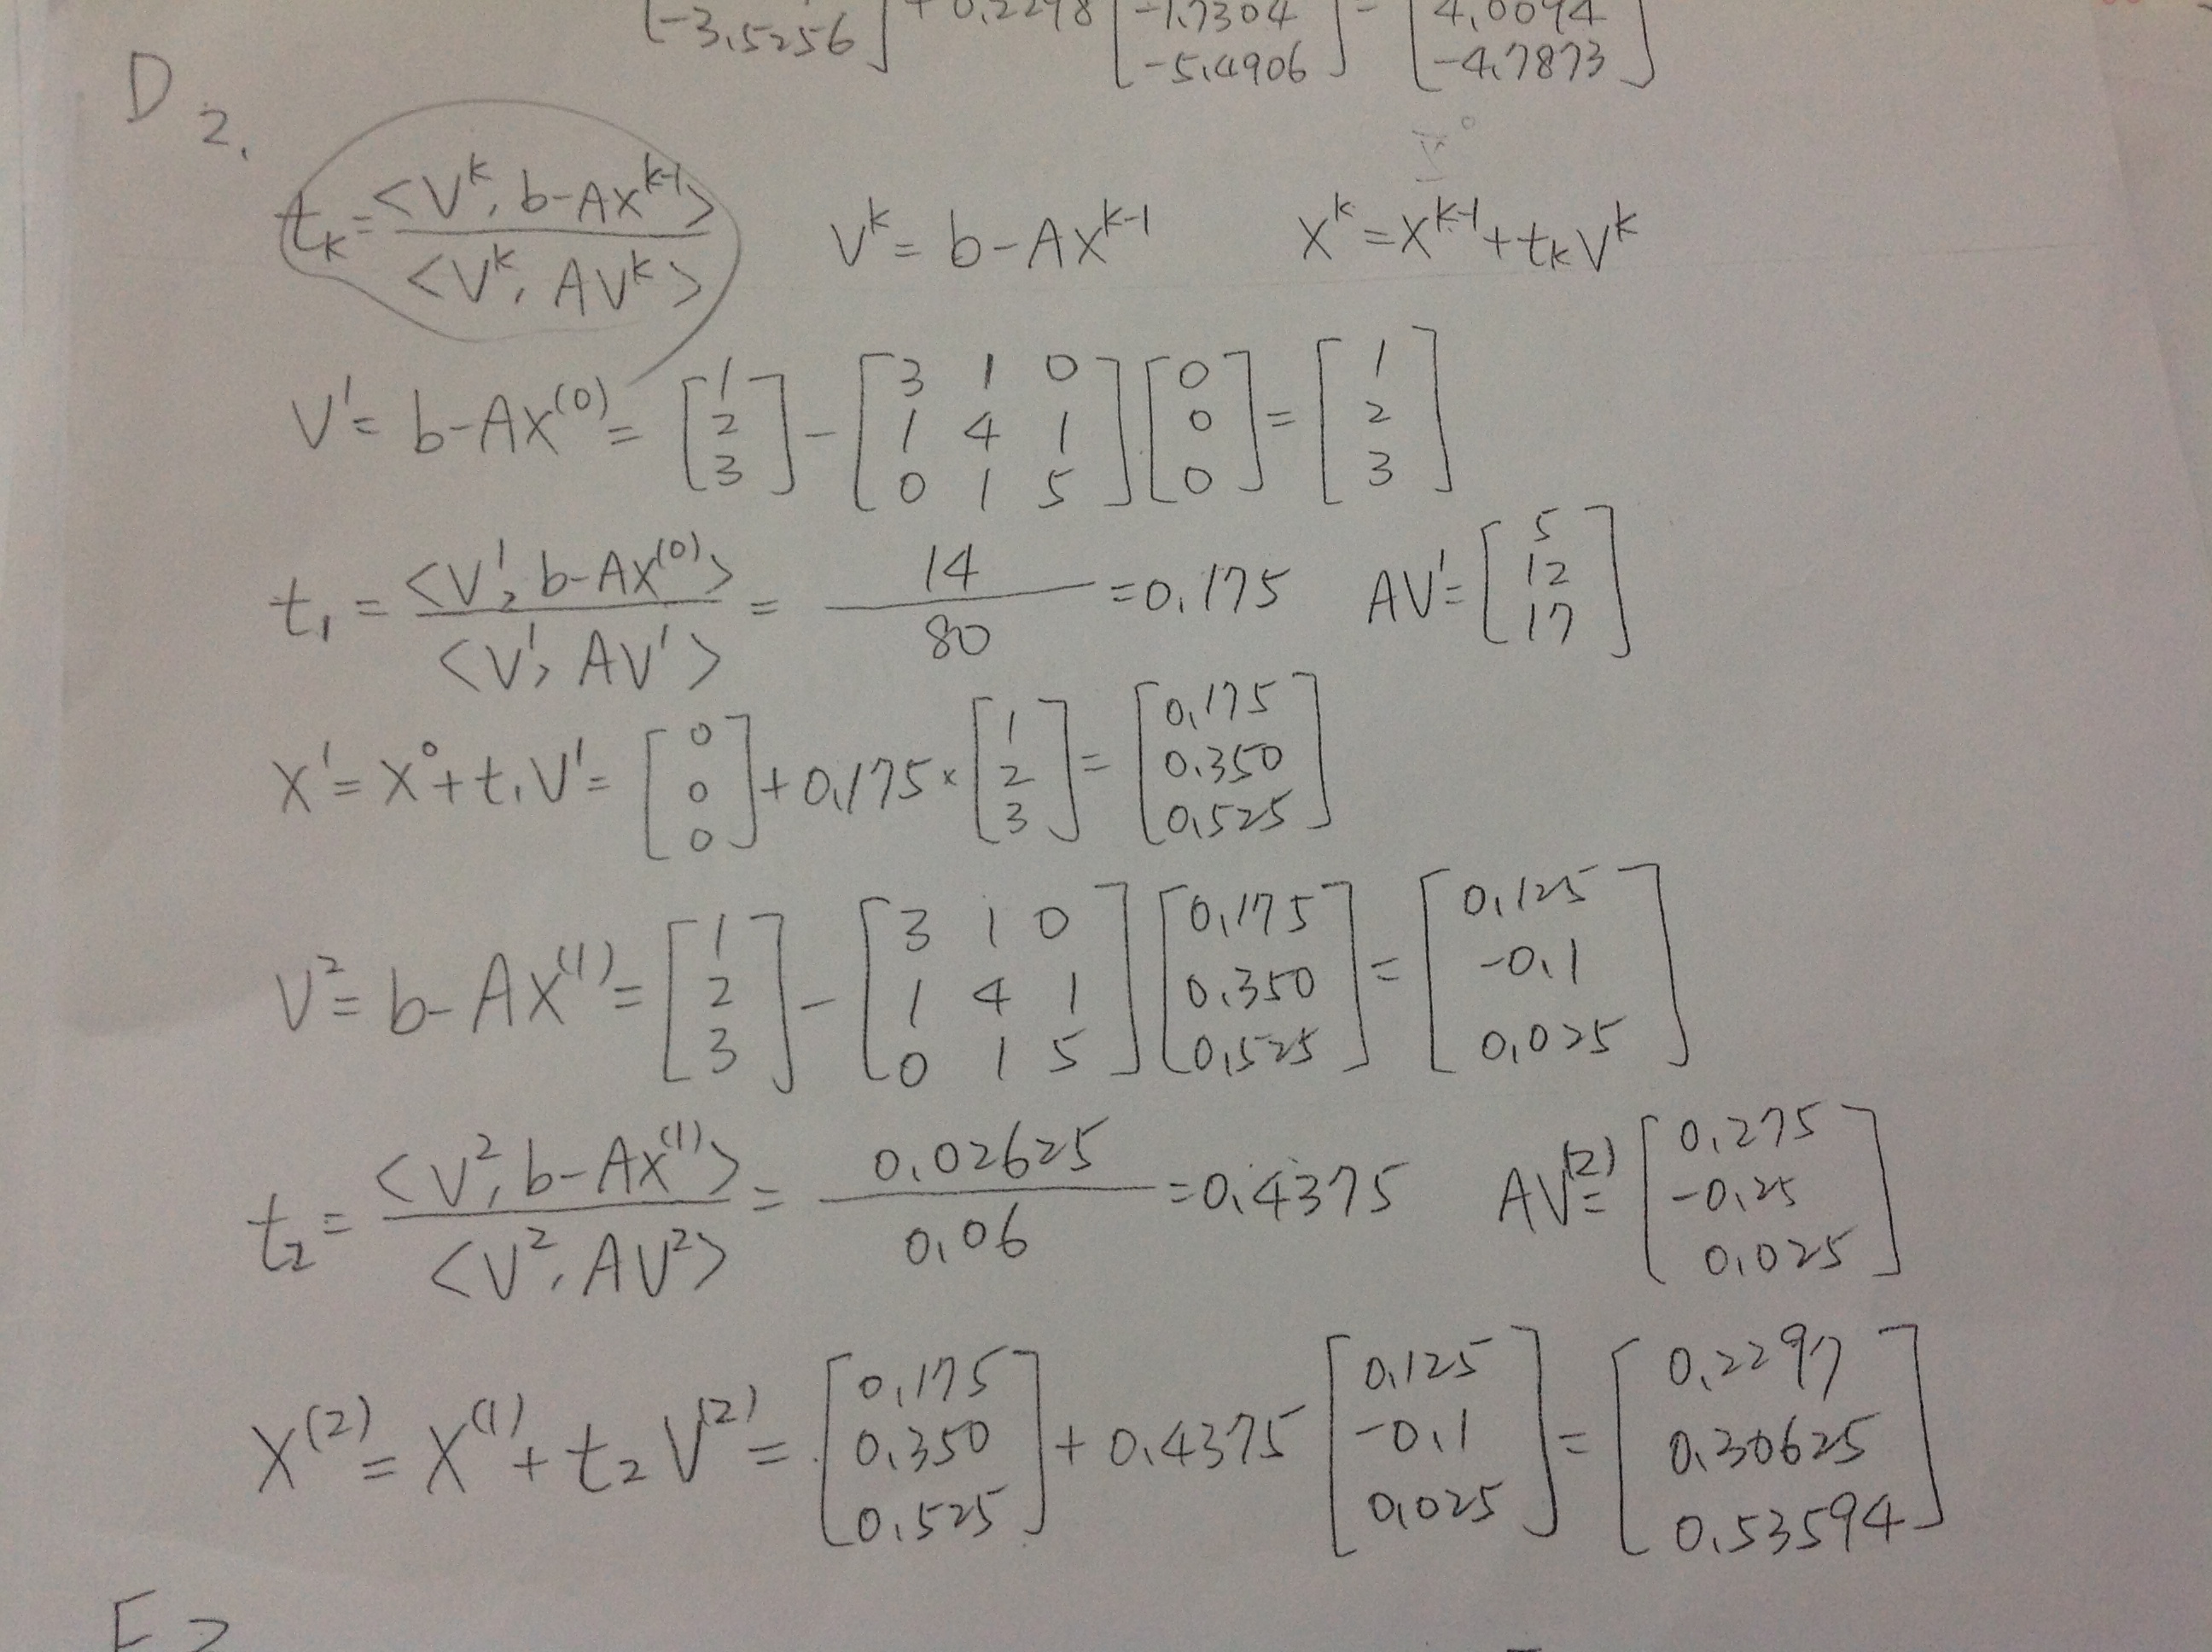 [-3.5256] + 0.2298 [-1.7304 -5.4906] = [4.0094 -4.7873]
D 2.
t_k = <V^k, b-AX^{k-1}> / <V^k, AV^k>   V^k = b-AX^{k-1}   X^k = X^{k-1} + t_k V^k
V^1 = b-AX^{(0)} = [1 2 3] - [3 1 0; 1 4 1; 0 1 5] [0 0 0] = [1 2 3]
t_1 = <V^1, b-AX^{(0)}> / <V^1, AV^1> = 14 / 80 = 0.175   AV^1 = [5 12 17]
X^1 = X^0 + t_1 V^1 = [0 0 0] + 0.175 × [1 2 3] = [0.175 0.350 0.525]
V^2 = b-AX^{(1)} = [1 2 3] - [3 1 0; 1 4 1; 0 1 5] [0.175 0.350 0.525] = [0.125 -0.1 0.025]
t_2 = <V^2, b-AX^{(1)}> / <V^2, AV^2> = 0.02625 / 0.06 = 0.4375   AV^{(2)} = [0.275 -0.25 0.025]
X^{(2)} = X^{(1)} + t_2 V^{(2)} = [0.175 0.350 0.525] + 0.4375 [0.125 -0.1 0.025] = [0.2297 0.30625 0.53594]